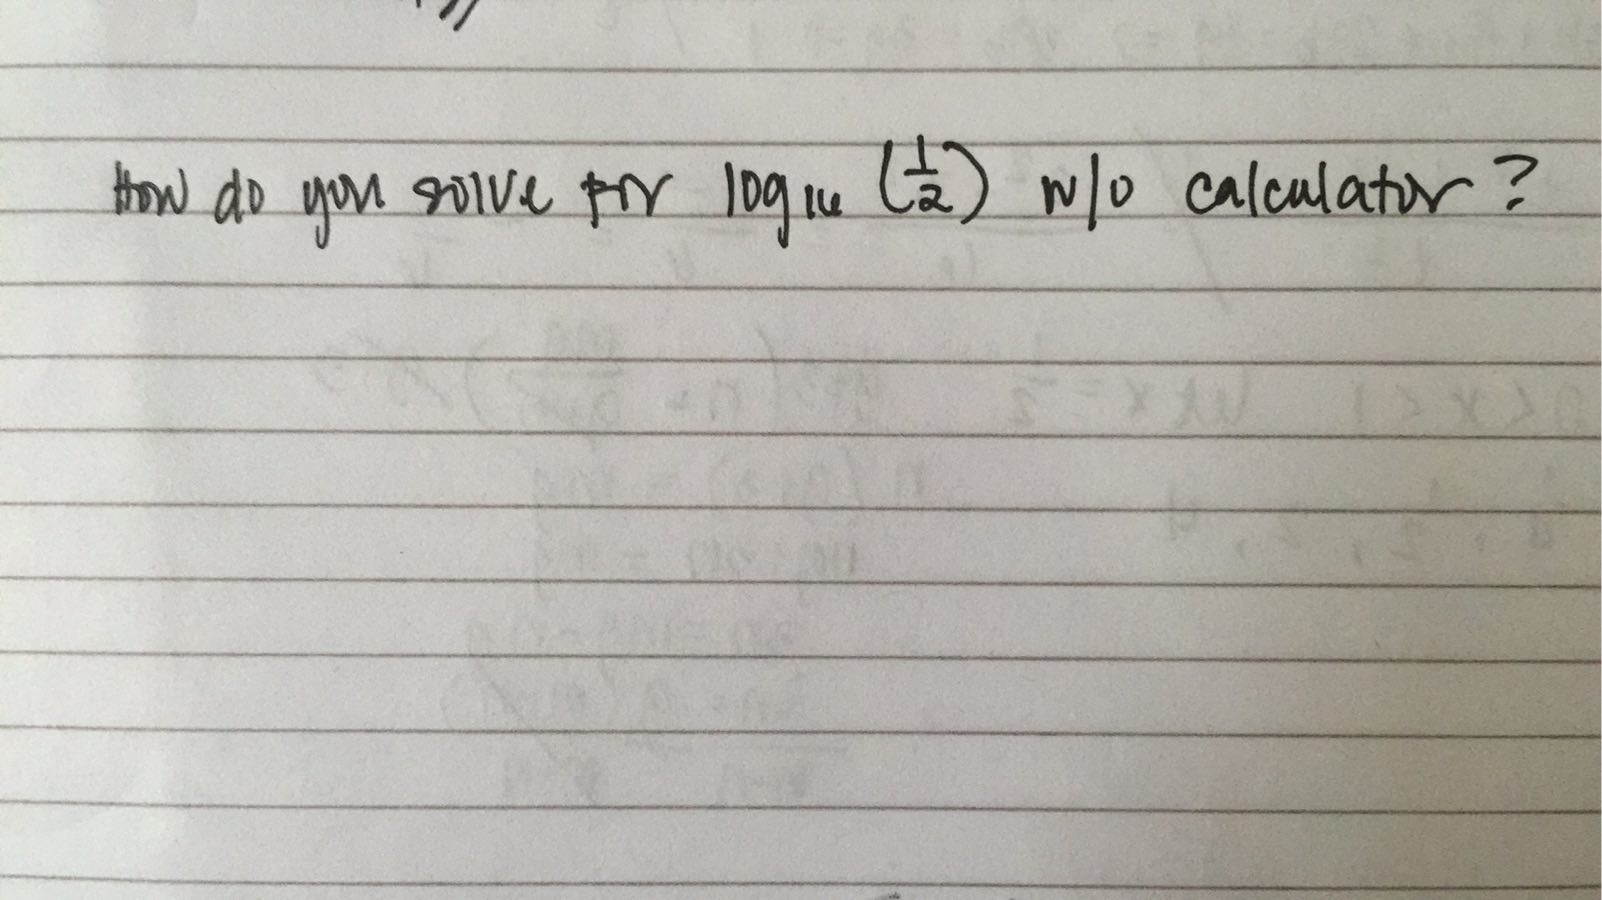 How do you solve for log₁₆ (1/2) w/o calculator?